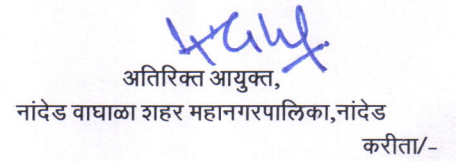 अतिरिक्त आयुक्त,
नांदेड वाघाळा शहर महानगरपालिका,नांदेड
करीता/-